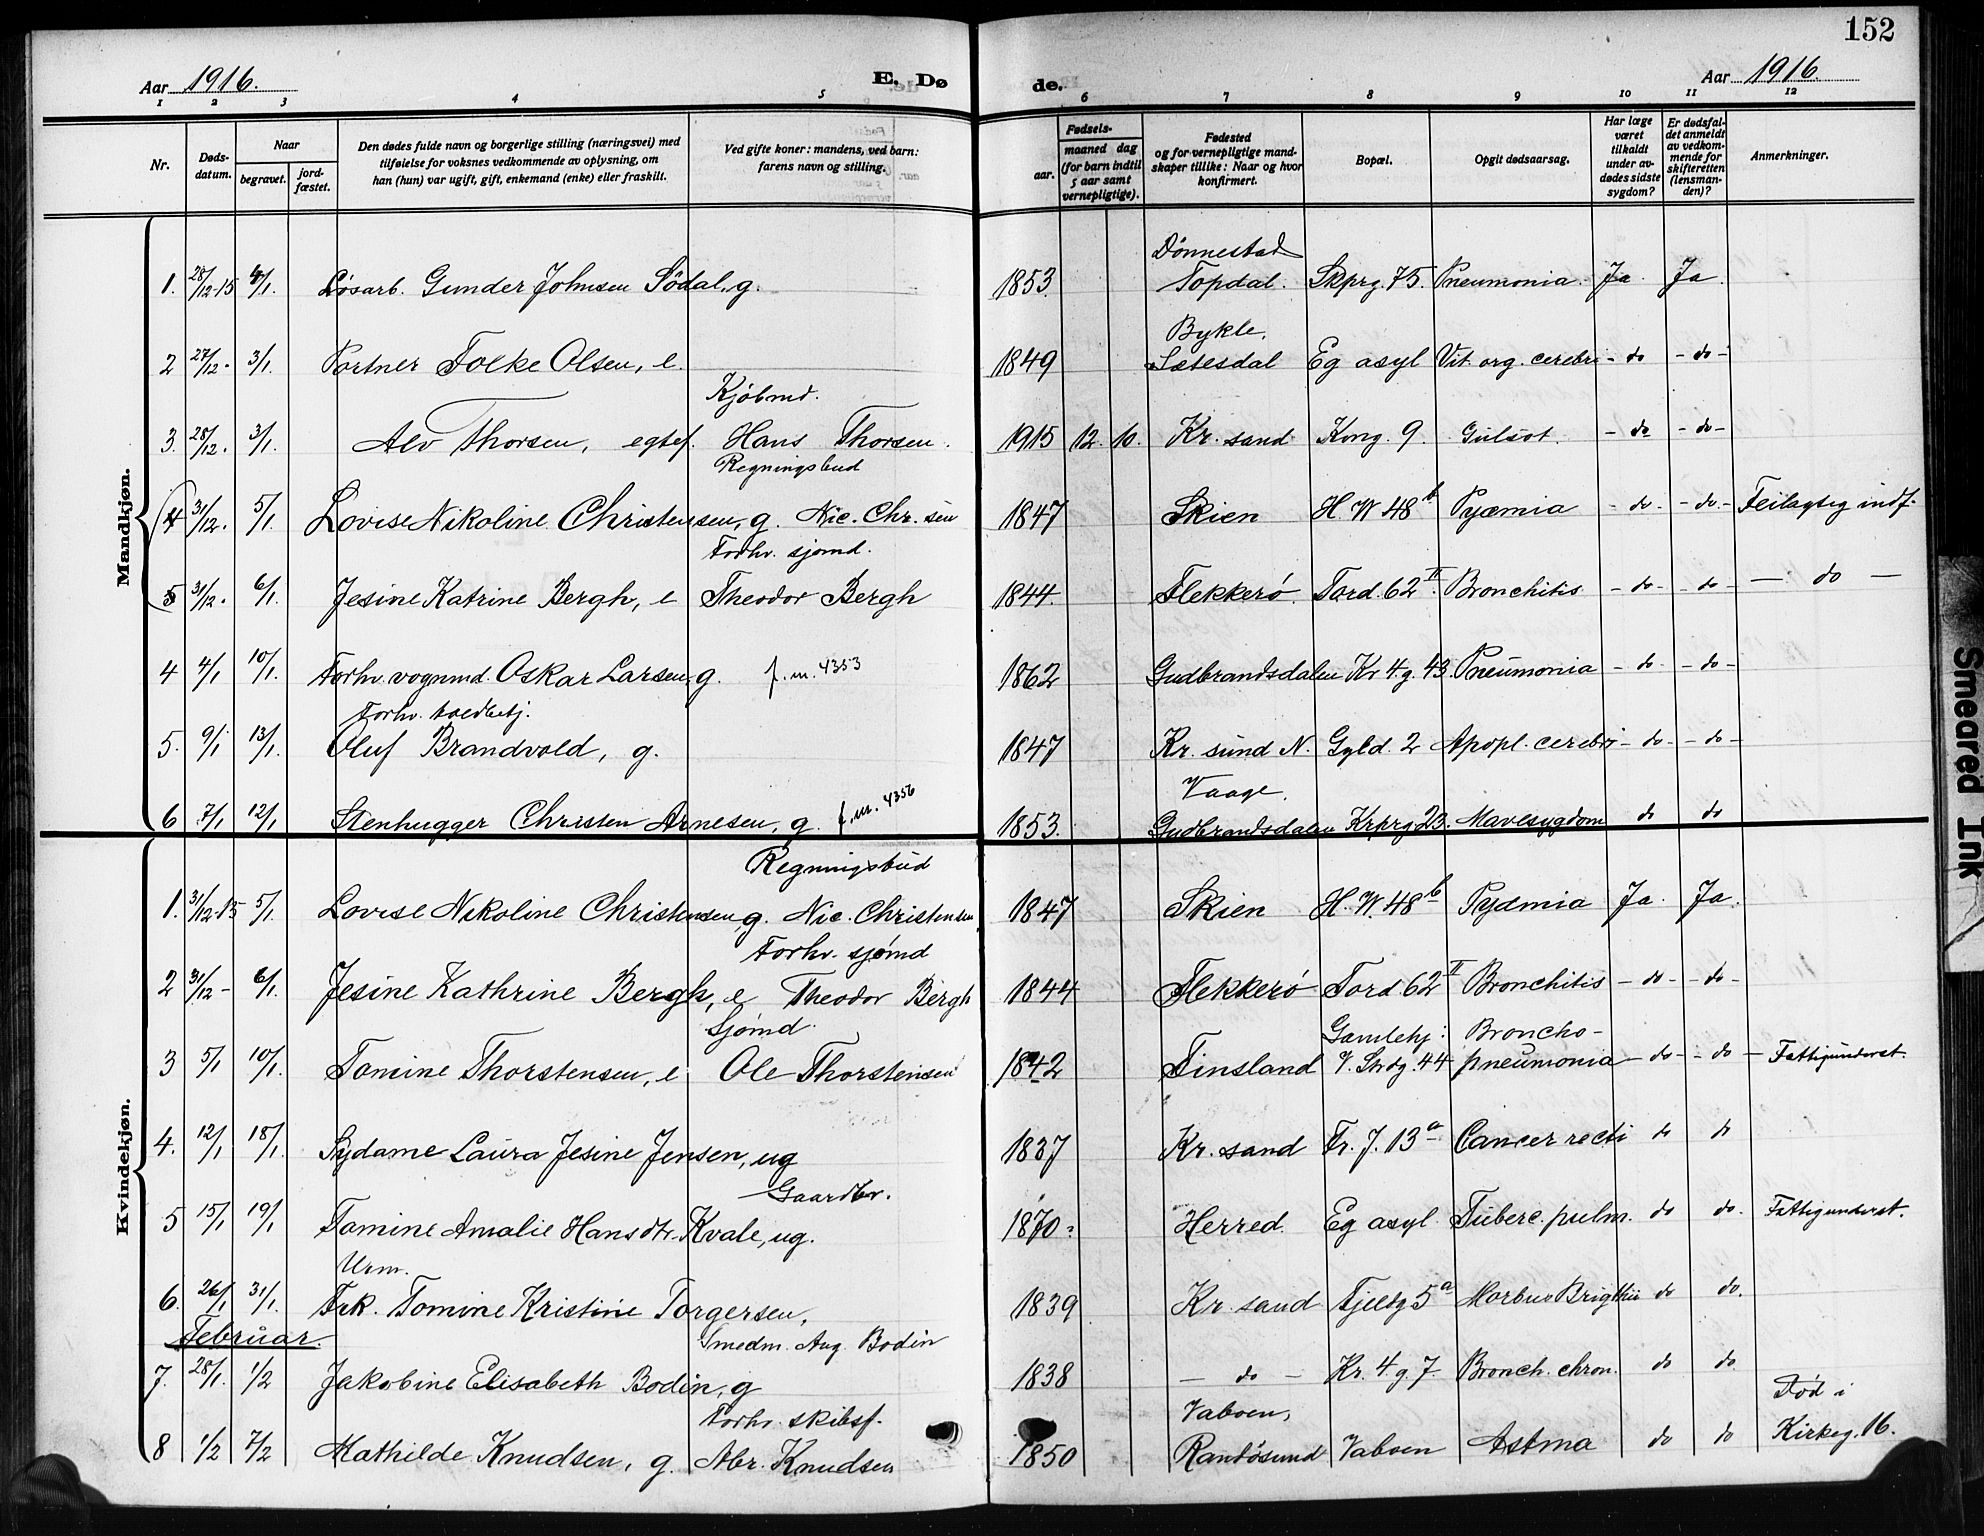 152
Aar 1916. E. Døde. Aar 1916
1 2 3 4 5 6 7 8 9 10 11 12
Nr. Døds-datum. Naar begravet. jord-fæstet. Den dødes fulde navn og borgerlige stilling (næringsvei) med tilføielse for voksnes vedkommende av oplysning, om han (hun) var ugift, gift, enkemand (enke) eller fraskilt. Ved gifte koner: mandens, ved barn: farens navn og stilling. Fødsels- aar. maaned dag (for barn indtil 5 aar samt vernepligtige). Fødested og for vernepligtige mand-skaper tillike: Naar og hvor konfirmert. Bopæl. Opgit dødsaarsag. Har læge været tilkaldt under av-dødes sidste sygdom? Er dødsfal-det anmeldt av vedkom-mende for skifteretten (lensman-den)? Anmerkninger.
Mandkjøn.
Dönnestad
1. 28/12-15 4/1. Løsarb. Gunder Johnsen Södal, g. 1853. Topdal. Skprg. 75. Pneumonia. Ja Ja
Bykle,
2 27/12- 3/1. Portner Folke Olsen, e. 1849 Sætesdal Eg asyl Vit. org. cerebri - do - do -
Kjöbmd.
3. 28/12. 3/1. Alv Thorsen, egtef. Hans Thorsen. 1915 12. 10. Kr. sand Kong. 9. Gulsot. - do - do -
Regningsbud
4 31/12. 5/1. Lovise Nikoline Christensen, g. Nic. Chr.sen 1847 Skien H. W 48 b Pyæmia - do - - do - Feilagtig indf.
Forhv. sjømd.
5 31/12. 6/1. Jesine Katrine Bergh, e Theodor Bergh 1844. Flekkerö. Tord. 62 II. Bronchitis - do - - do - — do —
4 4/1 10/1. Forhv. vognmd. Oskar Larsen, g. f. m. 4353 1862 Gudbrandsdalen Kr 4. g. 43. Pneumonia - do - - do -
Forhv. toldbetj.
5. 9/1 13/1. Oluf Brandvold, g. 1847 Kr. sund N. Gyld. 2 Apopl. cerebri - do - - do -
Vaage.
6 7/1 12/1 Stenhugger Christen Arnesen, g. f. m. 4356 1853. Gudbrandsdalen Krprg. 23. Mavesygdom do do
Kvindekjøn.
Regningsbud
1. 31/12-15 5/1. Lovise Nikoline Christensen, g. Nic. Christensen, 1847 Skien H. W. 48 b Pyæmia Ja. Ja.
Forhv. sjømd
2 31/12- 6/1. Jesine Kathrine Bergh, e Theodor Bergh 1844 Flekkerö Tord 62 II Bronchitis - do - - do -
Sjømd. Gamlehj: Broncho-
3 5/1 10/1. Tomine Thorstensen, e Ole Thorstensen 1842 Finsland V. Strdg. 44 pneumonia - do - - do - Fattigunderst.
4. 12/1 18/1. Sydame Laura Jesine Jensen, ug 1837 Kr. sand Fr. J. 13 a Cancer recti do do
Gaardbr.
5 15/1 19/1 Tomine Amalie Hansdtr. Kvale, ug. 1870. Herred. Eg asyl. Tuberc. pulm. do do. Fattigunderst.
Urm.
6. 26/1 31/1. Frk. Tomine Kristine Torgersen, 1839 Kr. sand Fjeldg 5 a Morbus Brigthii do do.
Februar. Smedm. Aug. Bodin
7. 28/1. 1/2 Jakobine Elisabeth Bodin, g 1838 — do — Kr. 4. g 7. Bronch. chron. do do
Forhv. skibsf. Vaboen, Død i
8 1/2 7/2 Mathilde Knudsen, g. Abr. Knudsen 1850 Randösund Vaboen Astma do do Kirkeg. 16.
Smeared Ink